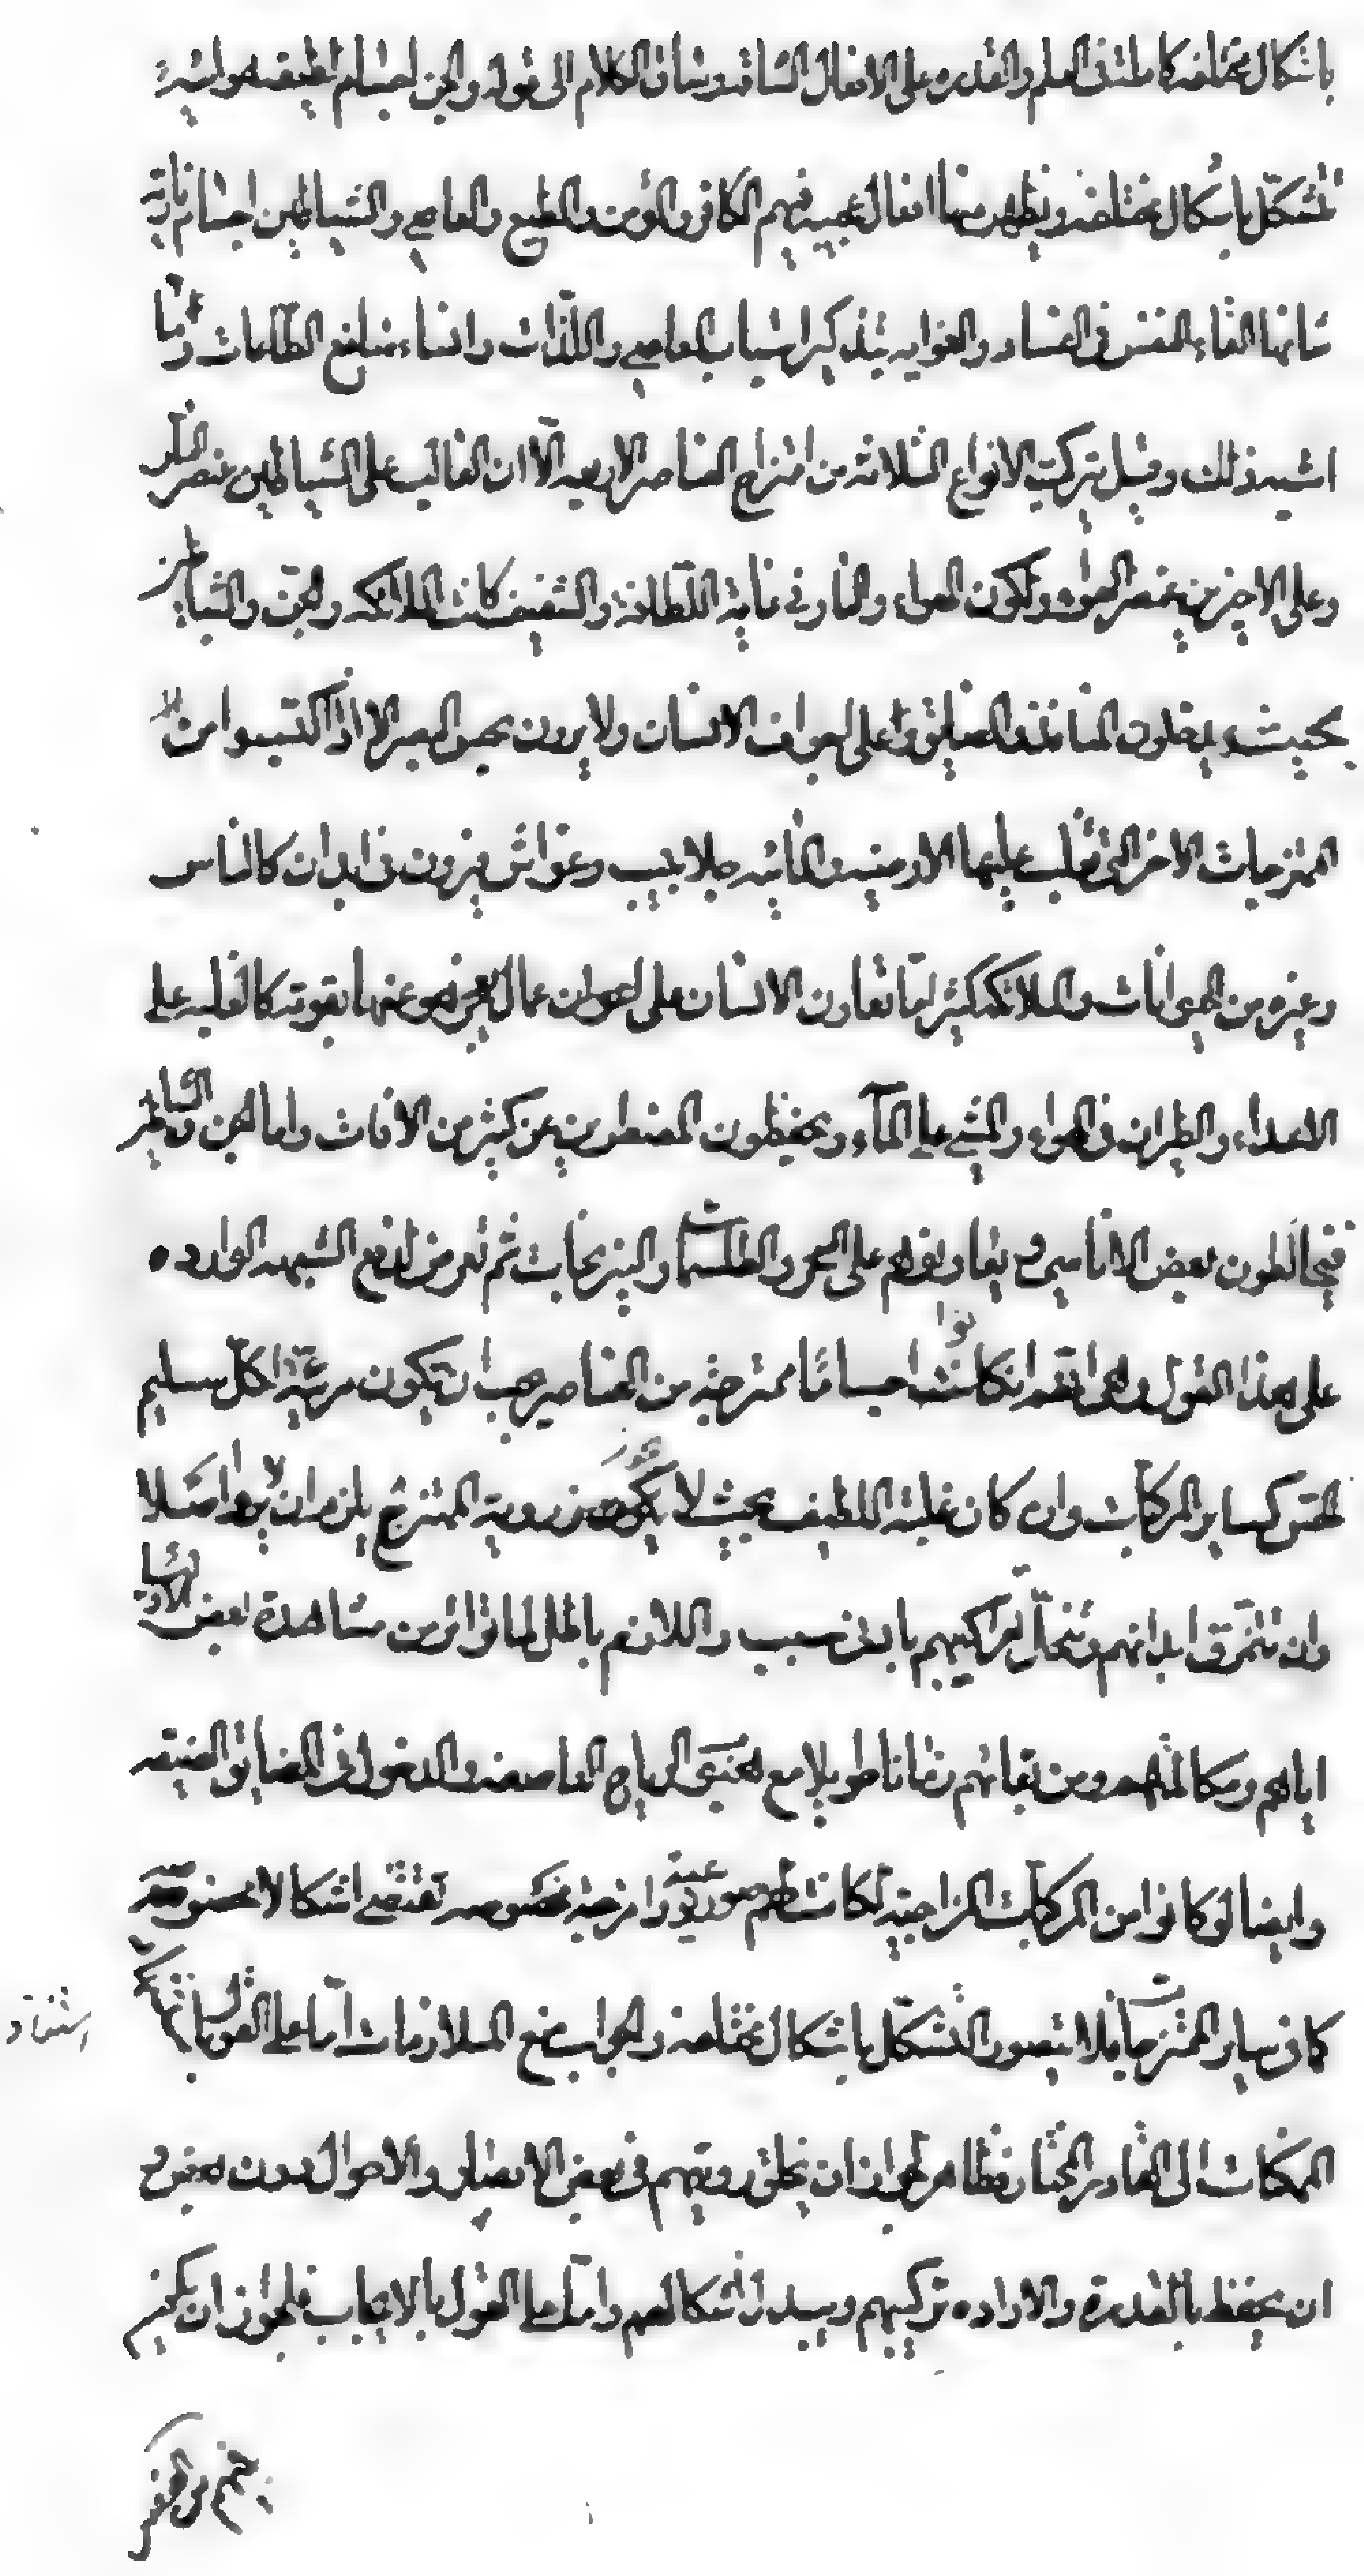 باشكال مختلفه كاملة فى العلم والقدره على الافعال الشاقه وساق الكلام الى قوله والجن اجسام لطيفه هوائية
تتشكل باشكال مختلفه ويظهر منها افعال عجيبه فيهم الكافر والمؤمن والمطيع والعاصى والشياطين اجسام نارية
شانها القاء النفس فى الفساد والغوايه بتذكير اسباب المعاصى واللذات وانساء منافع الطاعات وما
اشبه ذلك وقيل تركيب الانواع الثلاثه من امتزاج العناصر الاربعه الا ان الغالب على الشياطين عنصر النار
وعلى الاخرين عنصر الهواء ولكون الهواء والنار فى غاية اللطافة والشفيف كانت الملائكه والجن والشياطين
بحيث يدخلون المنافذ والمضايق حتى اجواف الانسان ولا يرون بحس البصر الا اذا اكتسبوا من
الممتزجات الاخر التى تغلب عليها الارضيه والمائيه جلابيب وغواشى فيرون فى ابدان كالناس
وغيره من الحيوانات والملائكة كثيرا ما تعاون الانسان على اعمال يعجز هو عنها بقوته كالغلبه على
الاعداء والطيران فى الهواء والمشى على الماء ويحفظون المضطرين عن كثير من الافات واما الجن والشياطين
فيخالطون بعض الاناسى ويعاونونهم على السحر والطلسمات والنيرنجات ثم تعرض لدفع الشبهه الوارده
على هذا القول وهى انها ان كانوا اجساما ممتزجة من العناصر يجب ان يكون مرئية لكل سليم
الحس كساير المركبات وان كان غلبة اللطيف بحيث لا يجوز معه روية الممتزج يلزم ان لا يروا اصلا
وان تتمزق ابدانهم وتنحل تراكيبهم بادنى سبب واللازم باطل لما تواتر من مشاهدة بعض الاولياء
اياهم ومكالمتهم ومن بقائهم زمانا طويلا مع هبوب الرياح العاصفه والدخول فى المضايق الضيقه
وايضا لو كانوا من المركبات المزاجية لكانت لهم صور نوعية وامزجة مخصوصه تقتضى اشكالا مخصوصة
كما فى ساير الممتزجات فلا يتصور التشكل باشكال مختلفه والجواب منع الملازمات اما على القول باستناد
استناد
الممكنات الى القادر المختار فظاهر لجواز ان يخلق رويتهم فى بعض الابصار والاحوال دون بعض و
ان يحفظ بالقدرة والاراده تركيبهم ويبدل اشكالهم واما على القول بالايجاب فلجواز ان يكون فيهم